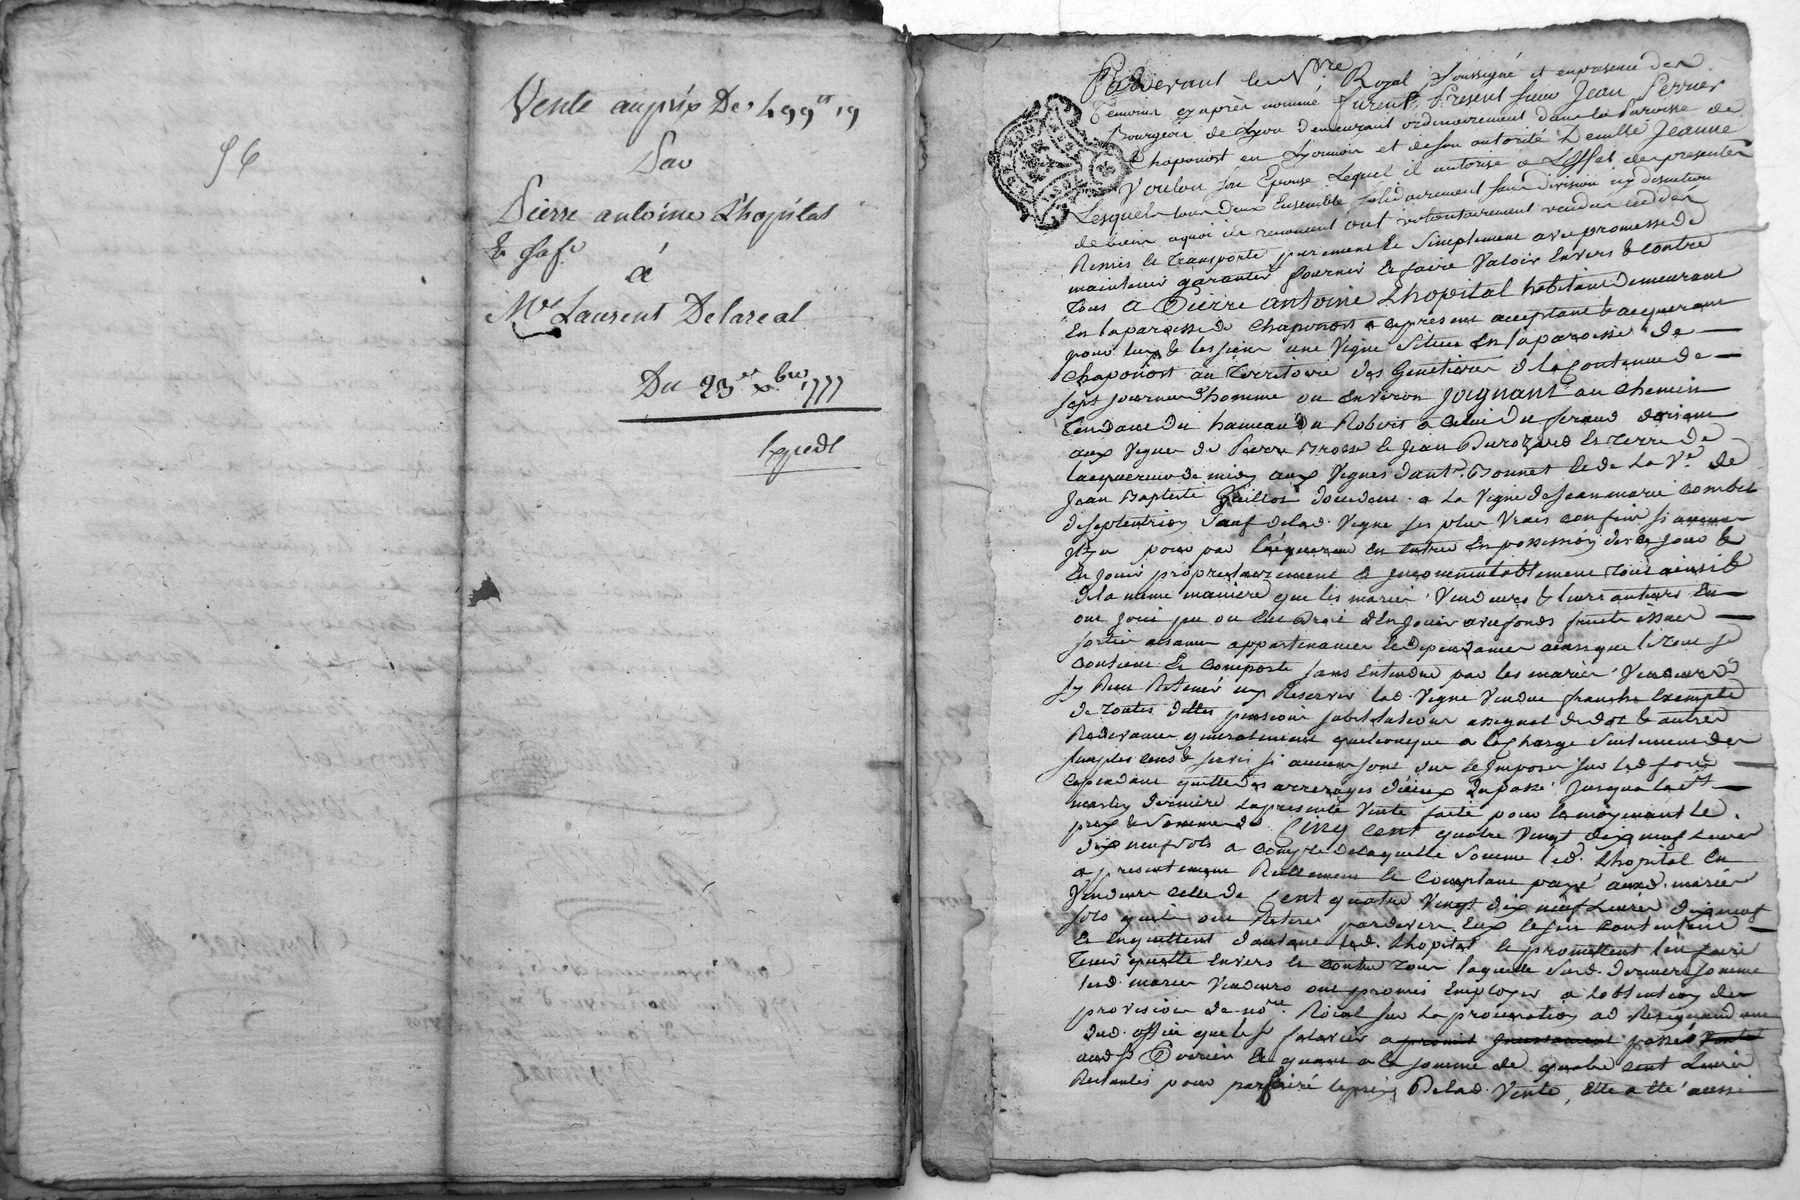 96
Vente au prix De 499 tt 19
Par
Pierre antoine Lhopital
& Sa fe
à
Me Laurent Delareal
Du 23er xbre 1777
Expedt
Pardevant le Nre Royal Soussigné et en presence des
Temoins cy après nommé furent Present sieur Jean Perrier
Bourgeois de Lyon demeurant ordinairement dans la Paroisse de
Chaponost en Lyonnois et de son autorité Demlle Jeanne
Voulou son Epouse Lequel il autorise a L'effet des presentes
Lesquels tous deux Ensemble solidairement sans division ny discution
de biens aquoi ils renoncent ont volontairement vendu cedder
Remis & Transporté purement & Simplement avec promesse de
maintenir garantir fournir & faire Valoir Envers & Contre
Tous a Pierre antoine Lhopital habitant demeurant
En la paroisse de Chaponost a cepresent acceptant & acquerant
pour luy & les siens une Vigne Située En la paroisse de
Chaponost au Territoire des Genetieres de la Contenue de
sept journée d'homme ou Environ Joignant au Chemin
Tendant du hameau du Robert a Celui du feraud dorisent
aux Vignes de Pierre Brosse & Jean Durozard Et Terre de
Lacquereur de midy aux Vignes d'ant. Bonnet & de La Ve de
Jean Baptiste Guillot doccident a La Vigne de Jean marie Combet
de septentrion Sauf de lad. Vigne ses plus Vrais confins si aucuns
il y a pour par l'acquereur En Entrer En possession des ce jour &
En Jouir propriétairement & Incommutablement Tout ainsi &
De la même maniere que les mariés Vendeurs & leurs auteurs En
ont Joui pu ou Eut Droit d'En Jouir avec fonds fruits issues
sorties aisances appartenances & dependances ainsi que le Tout se
Contient & Comporte sans Entendre par les mariés Vendeurs
sy Rien Retenir ny Reserver lad. Vigne Vendue franche Exempte
de Toutes dettes pensions substitutions assignat de dot & autres
Redevances generalement quelconque a la Charge Seulement des
simples cens & servis si aucuns sont dus & Imposés sur led fond
Cependant quitte des arrerages d'iceux du passé Jusqua la St
martin derniere La presente Vente faite pour & moyenant le
prix & Somme de Cinq Cent quatre Vingt dix neuf Livres
dix neuf sols a Compte de laquelle Somme led. Lhopital En
a presentement Reellement & Comptant payé auxd. mariés
Vendeurs celle de Cent quatre Vingt dix neuf Livres dix neuf
sols quils ont Retirer pardevers Eux & s'En Contentent
& En quittent d'autant led. Lhopital & promettent l'En faire
Tenir quitte Envers & Contre Tous laquelle Susd. derniere Somme
lesd. mariés Vendeurs ont promis Employer a Lobtention des
provisions de nore Roial sur La procuration ad Resignandum
dud. office que le sr a passée
aud. sr Perrier & quant a la somme de quatre cent Livres
Restantes pour parfaire le prix De lad. Vente, Elle a été aussi